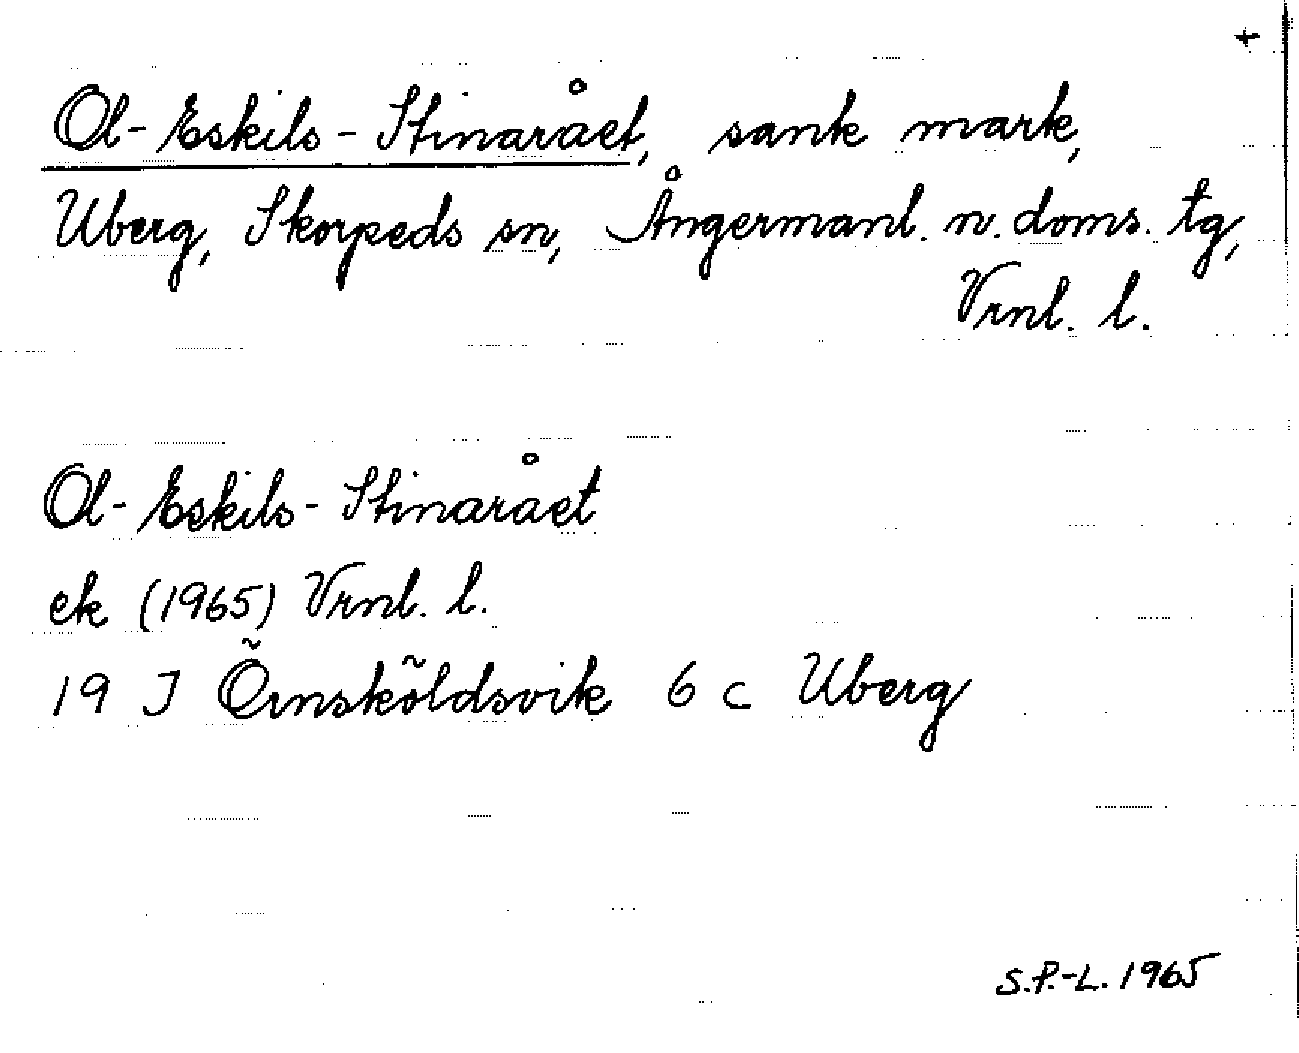 +
Ol-Eskils-Stinarået, sank mark,
Uberg, Skorpeds sn, Ångermanl. n. doms. tg,
Vrnl. l.
Ol-Eskils-Stinarået
ek (1965) Vrnl. l.
19 J Örnsköldsvik 6 c Uberg
S.P.-L. 1965